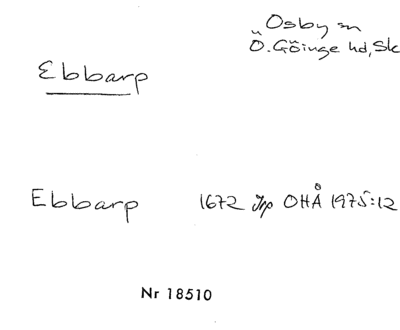 Osby sn
Ö. Göinge hd, Sk
Ebbarp
Ebbarp 1672 Jrp OHÅ 1975:12
Nr 18510